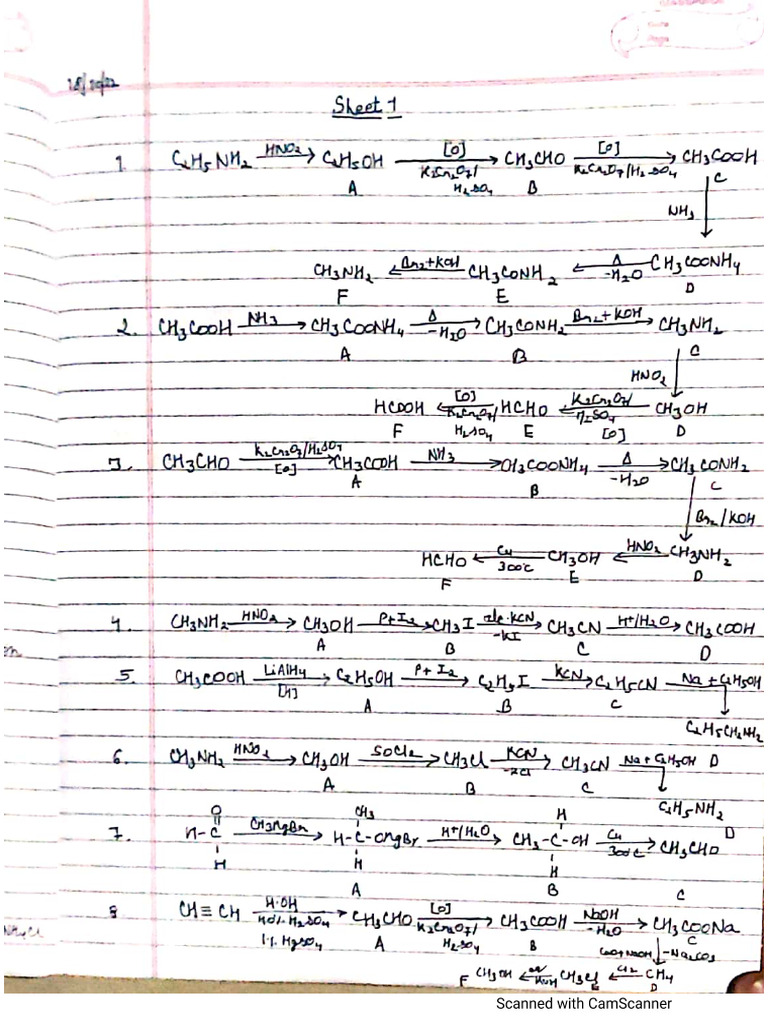 Sheet 1
1. C2H5NH2 HNO2→ C2H5OH [O] K2Cr2O7/ H2SO4→ CH3CHO [O] K2Cr2O7/H2SO4→ CH3COOH
A B C
NH3
CH3NH2 ←Br2+KOH CH3CONH2 ←Δ -H2O CH3COONH4
F E D
2. CH3COOH NH3→ CH3COONH4 Δ -H2O→ CH3CONH2 Br2+KOH→ CH3NH2
A B C
HNO2
HCOOH ←[O] K2Cr2O7/ H2SO4 HCHO ←K2Cr2O7/ H2SO4 [O] CH3OH
F E D
3. CH3CHO K2Cr2O7/H2SO4 [O]→ CH3COOH NH3→ CH3COONH4 Δ -H2O→ CH3CONH2
A B C
Br2/KOH
HCHO ←Cu 300°C CH3OH ←HNO2 CH3NH2
F E D
4. CH3NH2 HNO2→ CH3OH P+I2→ CH3I alc·KCN -KI→ CH3CN H+/H2O→ CH3COOH
A B C D
5. CH3COOH LiAlH4 [H]→ C2H5OH P+I2→ C2H5I KCN→ C2H5CN Na+C2H5OH
A B C
C2H5CH2NH2
D
6. CH3NH2 HNO2→ CH3OH SOCl2→ CH3Cl KCN→ CH3CN Na+C2H5OH
A B C
C2H5NH2
D
O CH3 H
7. H-C CH3MgBr→ H-C-OMgBr H+/H2O→ CH3-C-OH Cu 300°C→ CH3CHO
H H H
A B C
8 CH≡CH H·OH 40% H2SO4 1% HgSO4→ CH3CHO [O] K2Cr2O7/ H2SO4→ CH3COOH NaOH -H2O→ CH3COONa
A B C
-Na2CO3
F CH3OH ← CH3Cl ←Cl2 CH4
E D
Scanned with CamScanner